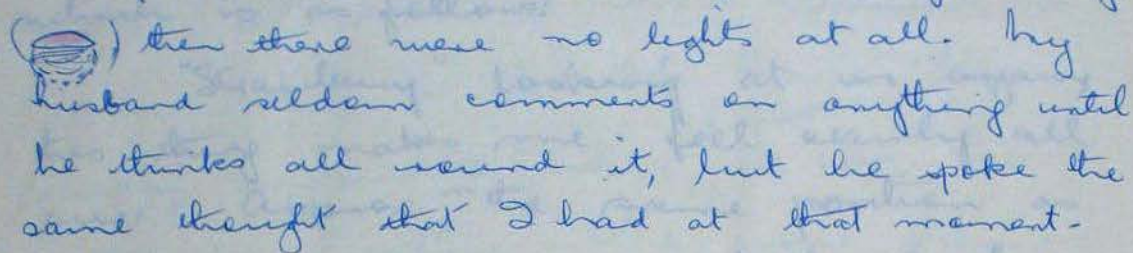 ( ) then there were no lights at all. My
husband seldom comments on anything until
he thinks all round it, but he spoke the
same thought that I had at that moment-